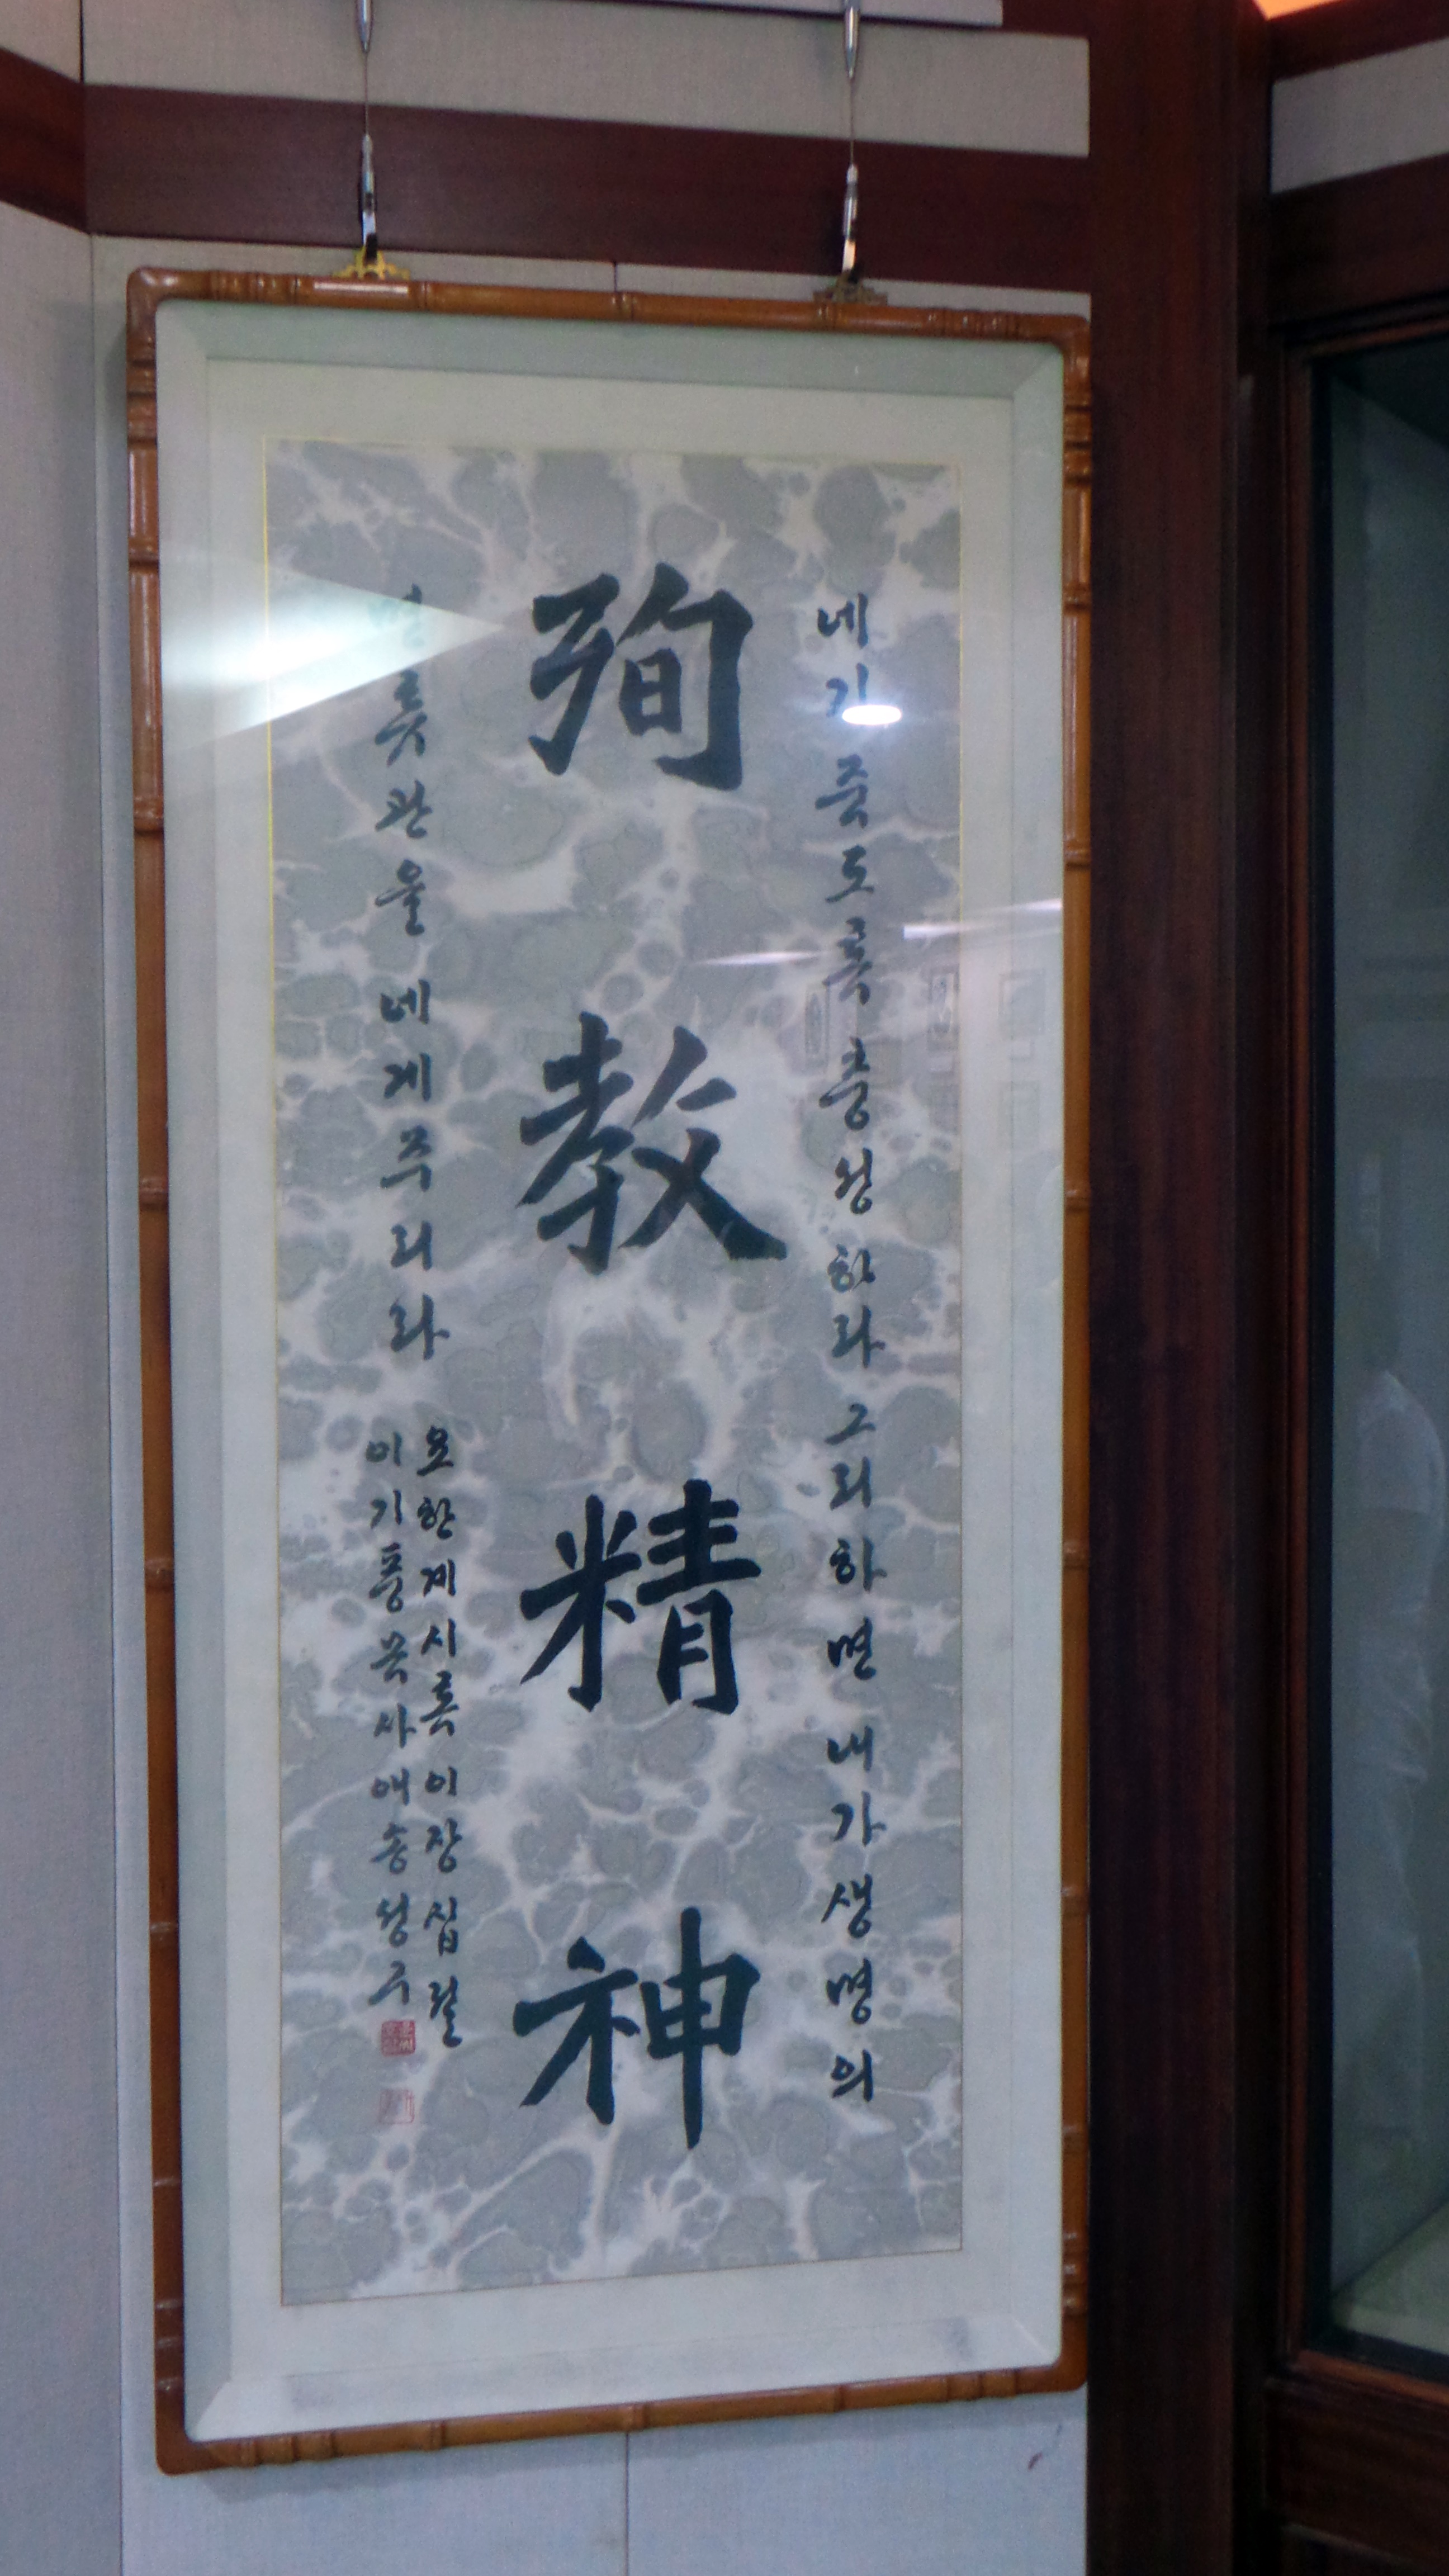 네가 죽도록 충성하라 그리하면 내가 생명의
殉教精神
면류관을 네게 주리라
요한계시록 이장 십절
이기풍목사 애송성구